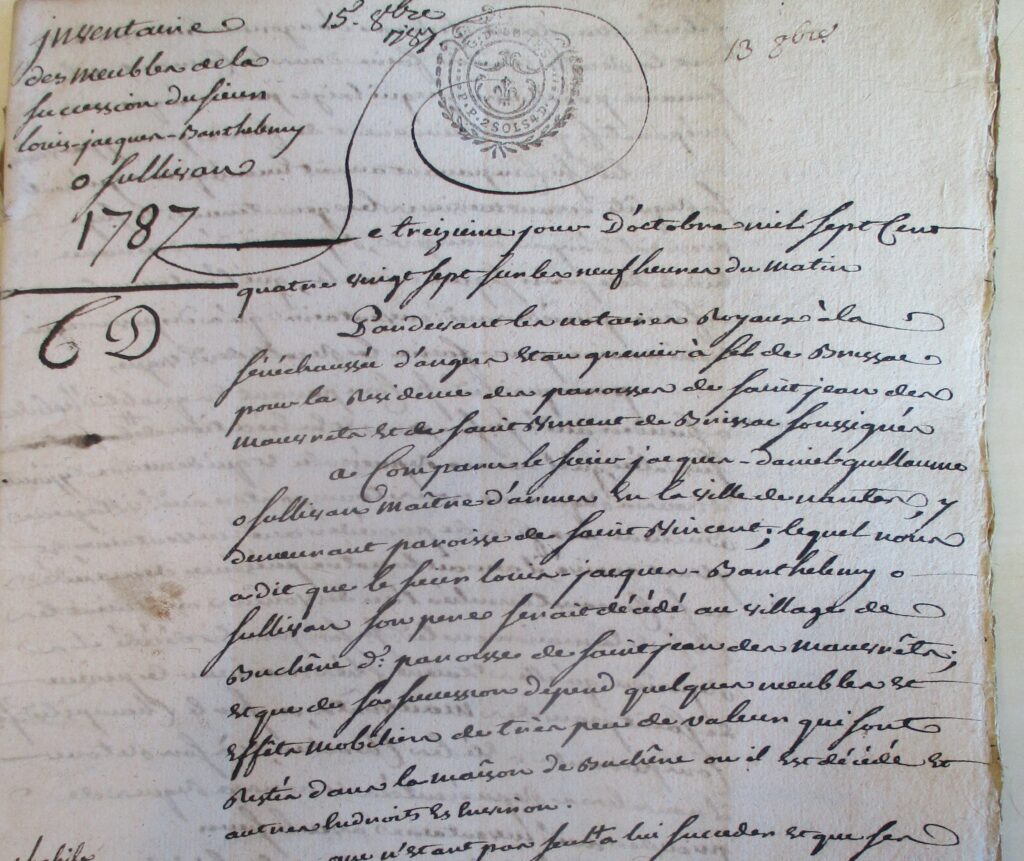 inventaire
des meubles de la
succession du sieur
louis-jacques-Barthelemy
o sullivan
1787
C D
15e 8bre
1787
P.P. 2 SOLS 4 D.
13 8bre
Le treizieme jour D'octobre mil sept Cent
quatre vingt sept sur les neuf heures du matin
Pardevant les notaires Royaux à la
sénéchaussée d'angers et au grenier à sel de Brissac
pour la Residence des paroisses de saint jean des
mauvrêts et de saint Vincent de Brissac soussignés
a Comparu le sieur jacques-Daniel guillaume
o sullivan maître d'armes En la ville de nantes, y
demeurant paroisse de saint Vincent; lequel nous
a dit que le sieur louis-jacques-Barthelemy o
sullivan son pere serait décédé au village de
Buchêne d.e paroisse de saint jean des mauvrêts;
et que de sa succession dépend quelques meubles et
Effêts mobiliers de très peu de valeur qui sont
Restés dans la maison de Buchêne ou il est décédé et
autres Endroits
que n'étant pas seul lui succeder et que ses